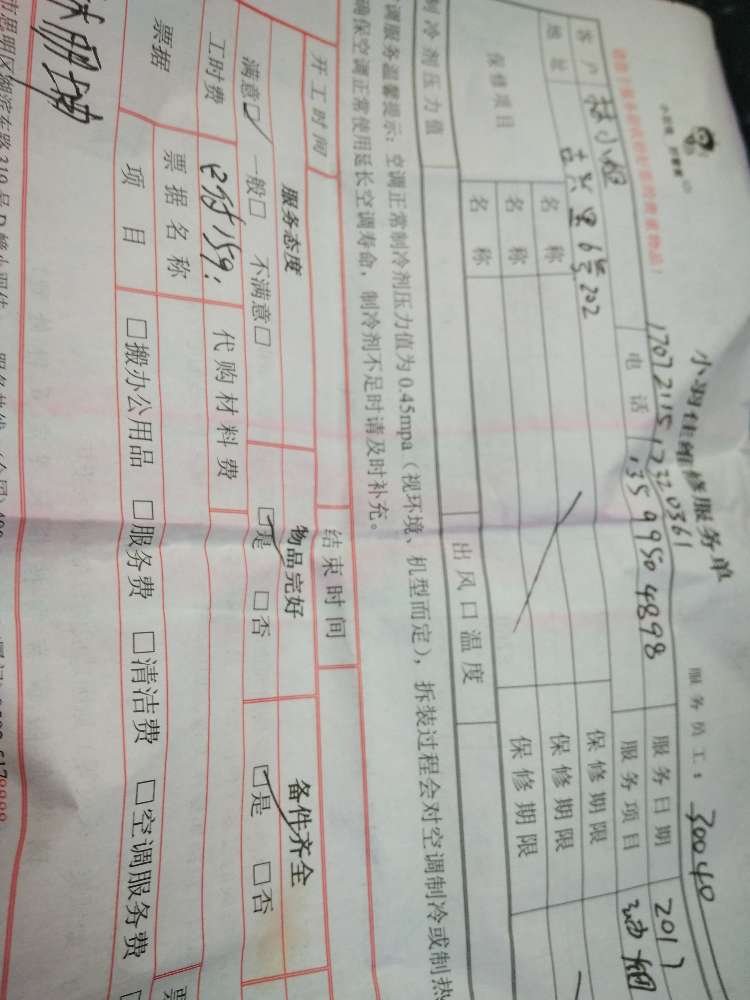 小羽佳 好管家
小羽佳维修服务单
服务员工：30040
17072115173220361
客户 林小姐 电话 13599504898 服务日期 2017
地址 6号202 服务项目 油烟
保修项目 名称 保修期限
名称 保修期限
名称 保修期限
制冷剂压力值 出风口温度
调服务温馨提示：空调正常制冷剂压力值为0.45mpa（视环境、机型而定），拆装过程会对空调制冷或制热
确保空调正常使用延长空调寿命，制冷剂不足时请及时补充。
开工时间 结束时间
服务态度 物品完好 备件齐全
满意☑ 一般□ 不满意□ ☑是 □否 ☑是 □否
工时费 已付159： 代购材料费
票据 票据名称
项目 □搬办公用品 □服务费 □清洁费 □空调服务费
市思明区湖滨东路319号D幢小羽佳